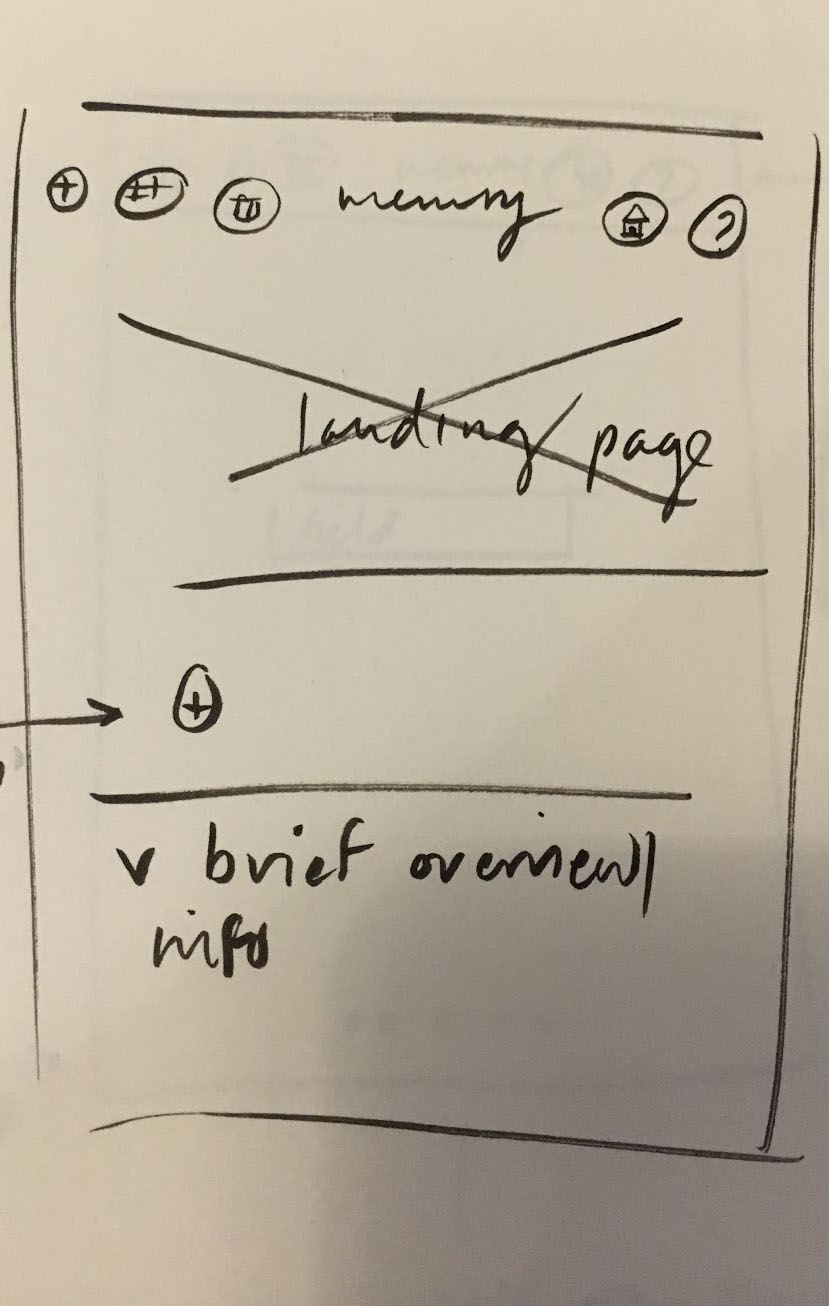 + ++ memory ?
landing page
+
v brief overview/
info